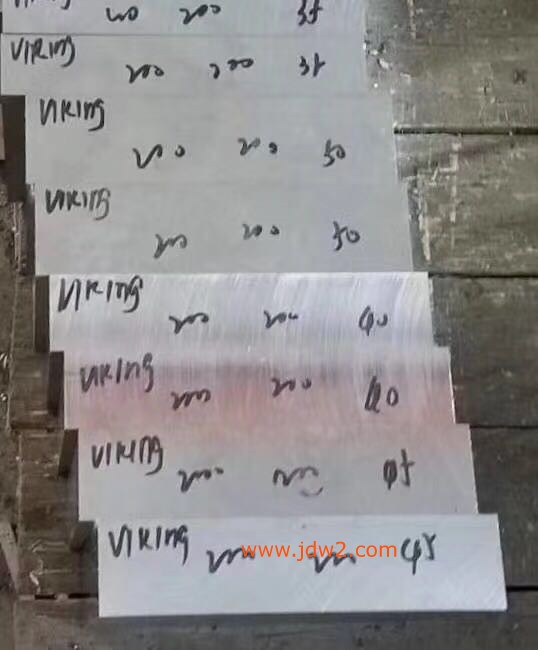 VIKING 200 200 35
VIKING 200 200 35
VIKING 200 200 50
VIKING 200 200 50
VIKING 200 200 40
VIKING 200 200 40
VIKING 200 200 45
VIKING 200 200 45
www.jdw2.com